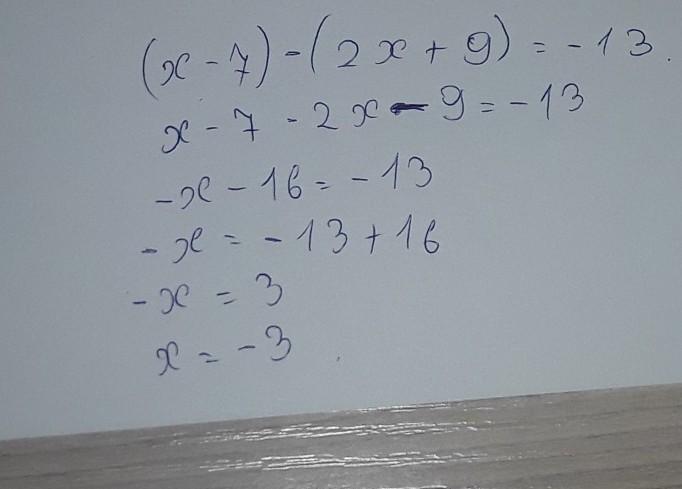 (x - 7) - (2x + 9) = -13.
x - 7 - 2x - 9 = -13
-x - 16 = -13
-x = -13 + 16
-x = 3
x = -3.